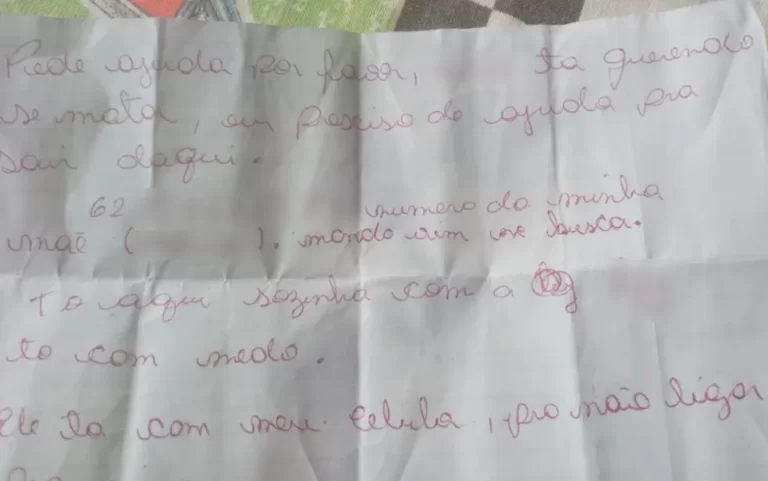 Pede ajuda por favor, ta querendo
se mata, eu presiso de ajuda pra
sair daqui.
62 numero da minha
mãe ( ). manda vim me busca.
to aqui sozinha com a
to com medo.
Ele ta com meu celula, pra não ligar